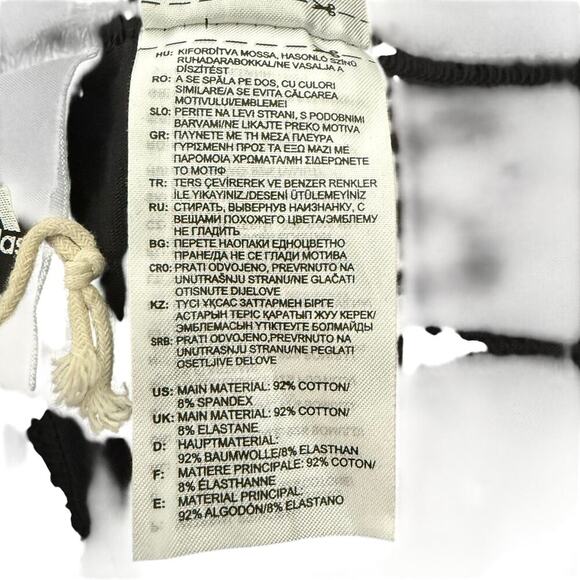 HU: KIFORDÍTVA MOSSA, HASONLÓ SZÍNŰ
RUHADARABOKKAL/NE VASALJA A
DÍSZÍTÉST
RO: A SE SPĂLA PE DOS, CU CULORI
SIMILARE/A SE EVITA CĂLCAREA
MOTIVULUI/EMBLEMEI
SLO: PERITE NA LEVI STRANI, S PODOBNIMI
BARVAMI/NE LIKAJTE PREKO MOTIVA
GR: ΠΛΥΝΕΤΕ ΜΕ ΤΗ ΜΕΣΑ ΠΛΕΥΡΑ
ΓΥΡΙΣΜΕΝΗ ΠΡΟΣ ΤΑ ΕΞΩ ΜΑΖΙ ΜΕ
ΠΑΡΟΜΟΙΑ ΧΡΩΜΑΤΑ/ΜΗ ΣΙΔΕΡΩΝΕΤΕ
ΤΟ ΜΟΤΙΦ
TR: TERS ÇEVİREREK VE BENZER RENKLER
İLE YIKAYINIZ/DESENİ ÜTÜLEMEYİNİZ
RU: СТИРАТЬ, ВЫВЕРНУВ НАИЗНАНКУ, С
ВЕЩАМИ ПОХОЖЕГО ЦВЕТА/ЭМБЛЕМУ
НЕ ГЛАДИТЬ
BG: ПЕРЕТЕ НАОПАКИ ЕДНОЦВЕТНО
ПРАНЕ/ДА НЕ СЕ ГЛАДИ МОТИВА
CRO: PRATI ODVOJENO, PREVRNUTO NA
UNUTRAŠNJU STRANU/NE GLAČATI
OTISNUTE DIJELOVE
KZ: ТҮСІ ҰҚСАС ЗАТТАРМЕН БІРГЕ
АСТАРЫН ТЕРІС ҚАРАТЫП ЖУУ КЕРЕК/
ЭМБЛЕМАСЫН ҮТІКТЕУГЕ БОЛМАЙДЫ
SRB: PRATI ODVOJENO,PREVRNUTO NA
UNUTRASNJU STRANU/NE PEGLATI
OSETLJIVE DELOVE
US: MAIN MATERIAL: 92% COTTON/
8% SPANDEX
UK: MAIN MATERIAL: 92% COTTON/
8% ELASTANE
D: HAUPTMATERIAL:
92% BAUMWOLLE/8% ELASTHAN
F: MATIERE PRINCIPALE: 92% COTON/
8% ÉLASTHANNE
E: MATERIAL PRINCIPAL:
92% ALGODÓN/8% ELASTANO